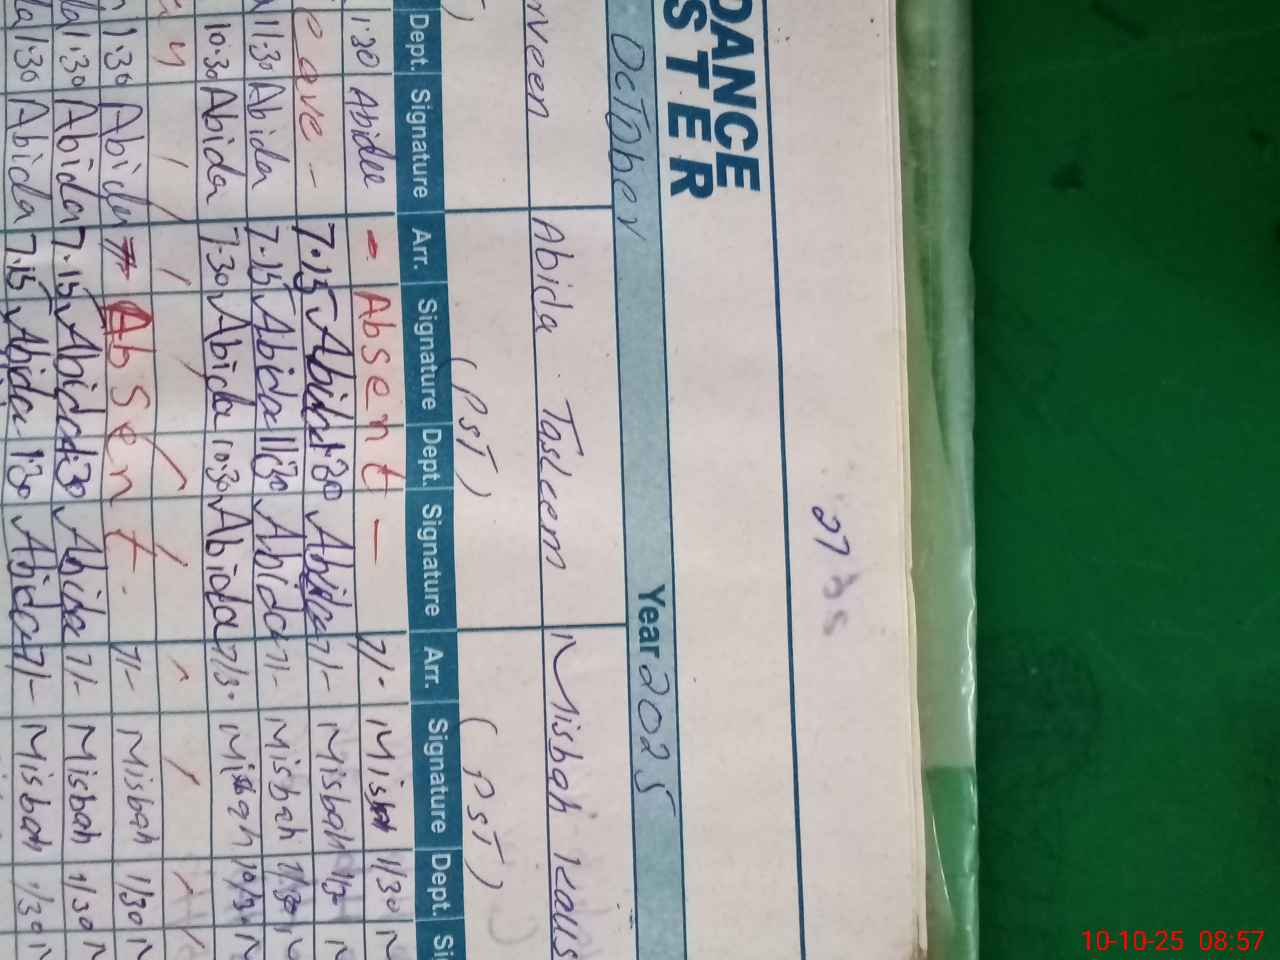 27
DANCE
STER
October Year 2025
rveen Abida Tasleem Misbah Kaus
) (PST) (PST)
Dept. Signature Arr. Signature Dept. Signature Arr. Signature Dept. Si
1:30 Abida - Absent - 7/- Misbah 1/30 N
eave - 7.15 Abida 1:30 Abida 7/- Misbah 1/30 N
11:30 Abida 7.15 Abida 11:30 Abida 7/- Misbah 11/30 N
10:30 Abida 7:30 Abida 10:30 Abida 7/30 Misbah 10/30 N
1:30 Abida Absent. 7/- Misbah 1/30 N
la 1:30 Abida 7.15 Abida 1:30 Abida 7/- Misbah 1/30 N
la 1:30 Abida 7.15 Abida 1:30 Abida 7/- Misbah 1/30 N
10-10-25 08:57